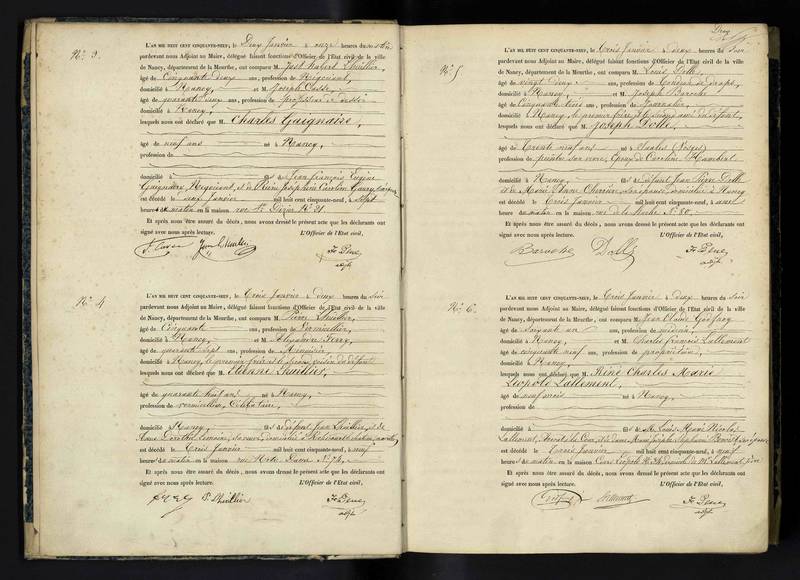 N.° 3.
L'AN MIL HUIT CENT CINQUANTE-NEUF, le Deux Janvier à onze heures du matin
pardevant nous Adjoint au Maire, délégué faisant fonctions d'Officier de l'État civil de la ville
de Nancy, département de la Meurthe, ont comparu M. Thuillier,
âgé de Cinquante deux ans, profession de Négociant,
domicilié à Nancy, et M. Joseph
âgé de quarante deux ans, profession de professeur de dessin
domicilié à Nancy,
lesquels nous ont déclaré que M. Charles Gaignaire,
âgé de neuf ans né à Nancy,
profession de
domicilié à fils de Jean François Eugène
Gaignaire, Négociant, et de Joséphine Caroline
est décédé le deux janvier mil huit cent cinquante-neuf, à sept
heures du matin en la maison rue St. Dizier N.° 21.
Et après nous être assuré du décès, nous avons dressé le présent acte que les déclarants ont
signé avec nous après lecture. L'Officier de l'État civil,
N.° 4
L'AN MIL HUIT CENT CINQUANTE-NEUF, le Trois Janvier à deux heures du soir
pardevant nous Adjoint au Maire, délégué faisant fonctions d'Officier de l'État civil de la ville
de Nancy, département de la Meurthe, ont comparu M. Pierre Lhuillier,
âgé de Cinquante ans, profession de Vermicellier,
domicilié à Nancy, et M. Alexandre Ferry,
âgé de quarante sept ans, profession de Menuisier,
domicilié à Nancy, le premier frère et le second voisin du défunt
lesquels nous ont déclaré que M. Etienne Lhuillier,
âgé de quarante huit ans né à Nancy,
profession de vermicellier, Célibataire,
domicilié à Nancy, fils de défunt Jean Lhuillier, et de
Anne Dorothée
est décédé le Trois Janvier mil huit cent cinquante-neuf, à neuf
heures du matin en la maison rue Notre Dame N.° 74.
Et après nous être assuré du décès, nous avons dressé le présent acte que les déclarants ont
signé avec nous après lecture. L'Officier de l'État civil,
P. Lhuillier
N.° 5
L'AN MIL HUIT CENT CINQUANTE-NEUF, le Trois Janvier à deux heures du soir
pardevant nous Adjoint au Maire, délégué faisant fonctions d'Officier de l'État civil de la ville
de Nancy, département de la Meurthe, ont comparu M. Louis Dollé,
âgé de vingt deux ans, profession de Tondeur de draps,
domicilié à Nancy, et M. Joseph Baroche
âgé de Cinquante trois ans, profession de Journalier,
domicilié à Nancy, le premier frère et le second ami du défunt,
lesquels nous ont déclaré que M. Joseph Dollé,
âgé de Trente neuf ans né à
profession de peintre sur verre, Epoux de Caroline Humbert
domicilié à Nancy fils de défunt Jean Pierre Dollé
et de Marie Anne domiciliée à Nancy
est décédé le Trois Janvier mil huit cent cinquante-neuf, à onze
heures du matin en la maison rue de la N.° 80.
Et après nous être assuré du décès, nous avons dressé le présent acte que les déclarants ont
signé avec nous après lecture. L'Officier de l'État civil,
Baroche Dollé
N.° 6.
L'AN MIL HUIT CENT CINQUANTE-NEUF, le Trois Janvier à deux heures du soir
pardevant nous Adjoint au Maire, délégué faisant fonctions d'Officier de l'État civil de la ville
de Nancy, département de la Meurthe, ont comparu M. Jean Claude Godfroy
âgé de Soixante un ans, profession de
domicilié à Nancy, et M. Charles François Lallement
âgé de cinquante neuf ans, profession de propriétaire,
domicilié à Nancy,
lesquels nous ont déclaré que M. Réné Charles Marie
Léopold Lallement,
âgé de neuf mois né à Nancy,
profession de
domicilié à fils de M. Louis Henri Nicolas
Lallement, et de dame Marie Joseph Stéphanie
est décédé le Trois Janvier mil huit cent cinquante-neuf, à neuf
heures du matin en la maison Cours Léopold N.° domicile de M. Lallement père
Et après nous être assuré du décès, nous avons dressé le présent acte que les déclarants ont
signé avec nous après lecture. L'Officier de l'État civil,